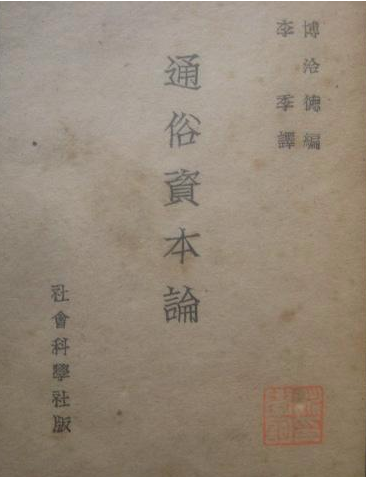 博洽德編
李季譯
通俗資本論
社會科學社版